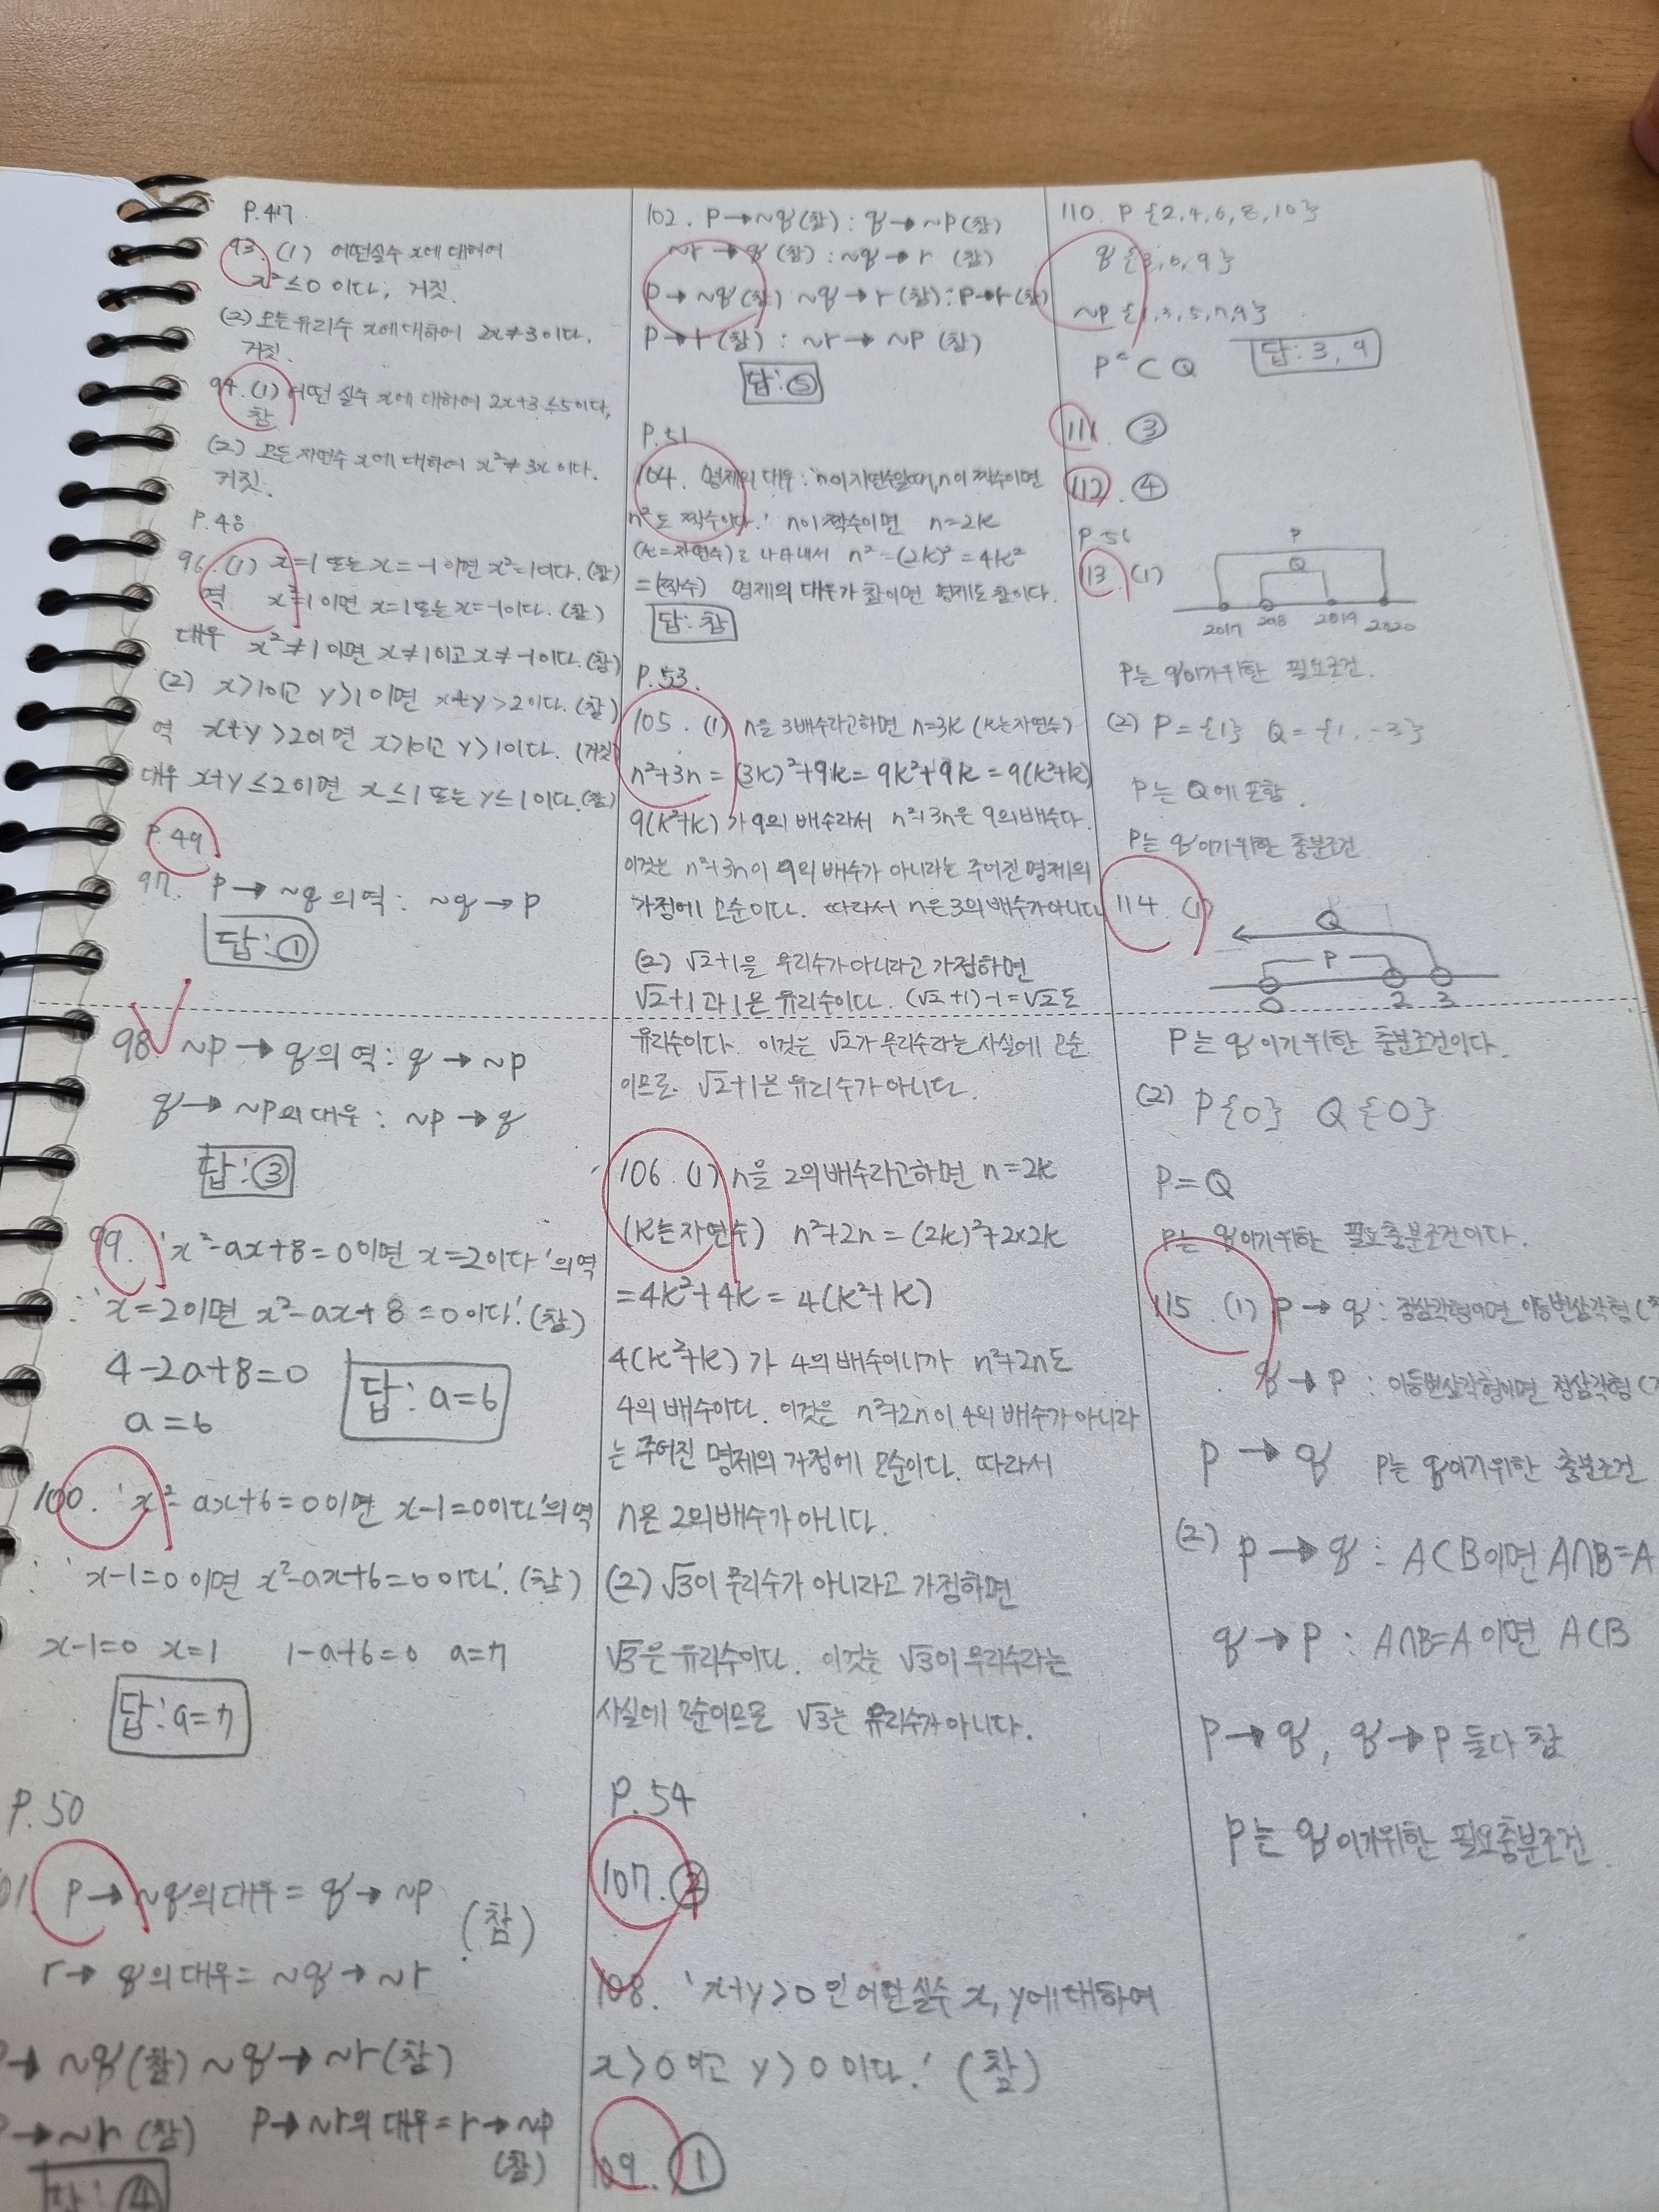 P.47
93. (1) 어떤실수 x에 대하여
x²≤0 이다, 거짓.
(2) 모든 유리수 x에 대하여 2x≠3이다.
거짓.
94. (1) 어떤 실수 x에 대하여 2x+3≤5이다,
참
(2) 모든 자연수 x에 대하여 x²≠3x이다.
거짓.
P.48
96. (1) x=1 또는 x=-1 이면 x²=1이다. (참)
역 x²=1 이면 x=1또는 x=-1이다. (참)
대우 x²≠1이면 x≠1이고 x≠-1이다. (참)
(2) x>1이고 y>1이면 x+y>2이다. (참)
역 x+y>2이면 x>1이고 y>1이다. (거짓)
대우 x+y≤2이면 x≤1 또는 y≤1이다. (참)
P.49
97. P→~q의 역: ~q→P
답: ①
98. ~P→q의 역: q→~P
q→~P의 대우: ~P→q
답: ③
99. 'x²-ax+8=0이면 x=2이다'의 역
: 'x=2이면 x²-ax+8=0이다.' (참)
4-2a+8=0
a=6
답: a=6
100. 'x²-ax+6=0이면 x-1=0이다'의 역
: 'x-1=0이면 x²-ax+6=0이다.' (참)
x-1=0 x=1 1-a+6=0 a=7
답: a=7
P.50
01. P→~q의 대우= q→~P
(참)
r→q의 대우= ~q→~r
→~q(참) ~q→~r(참)
→~r (참) P→~r의 대우=r→~P
(참)
답: ④
102. P→~q(참): q→~P(참)
~r→q(참): ~q→r (참)
P→~q(참) ~q→r(참): P→r(참)
P→r(참): ~r→~P (참)
답: ⑤
P.51
104. 명제의 대우: 'n이 자연수일때, n이 짝수이면
n²도 짝수이다.' n이 짝수이면 n=2k
(k=자연수)로 나타내서 n²=(2k)²=4k²
=(짝수) 명제의 대우가 참이면 명제도 참이다.
답: 참
P.53.
105. (1) n을 3배수라고하면 n=3k (k는 자연수)
n²+3n=(3k)²+9k=9k²+9k=9(k²+k)
9(k²+k)가 9의 배수라서 n²+3n은 9의 배수다.
이것은 n²+3n이 9의 배수가 아니라는 주어진 명제의
가정에 모순이다. 따라서 n은 3의 배수가 아니다
(2) √2+1을 무리수가 아니라고 가정하면
√2+1과 1은 유리수이다. (√2+1)-1=√2도
유리수이다. 이것은 √2가 무리수라는 사실에 모순
이므로 √2+1은 유리수가 아니다.
106. (1) n을 2의 배수라고하면 n=2k
(k는 자연수) n²+2n=(2k)²+2×2k
=4k²+4k=4(k²+k)
4(k²+k)가 4의 배수이니까 n²+2n도
4의 배수이다. 이것은 n²+2n이 4의 배수가 아니라
는 주어진 명제의 가정에 모순이다. 따라서
n은 2의 배수가 아니다.
(2) √3이 무리수가 아니라고 가정하면
√3은 유리수이다. 이것은 √3이 무리수라는
사실에 모순이므로 √3는 유리수가 아니다.
P.54
107. ②
108. 'x+y>0인 어떤 실수 x, y에 대하여
x>0이고 y>0이다.' (참)
109. ①
110. P {2,4,6,8,10}
q {3,6,9}
~P {1,3,5,7,9}
Pᶜ⊂Q 답: 3, 9
111. ③
112. ④
P.56
113. (1)
P
Q
2017 2018 2019 2020
P는 q이기위한 필요조건.
(2) P={1} Q={1,-3}
P는 Q에 포함.
P는 q이기위한 충분조건
114. (1)
Q
P
0 2 3
P는 q이기위한 충분조건이다.
(2) P{0} Q{0}
P=Q
P는 q이기위한 필요충분조건이다.
115. (1) P→q: 정삼각형이면 이등변삼각형
q→P: 이등변삼각형이면 정삼각형
P→q P는 q이기위한 충분조건
(2) P→q: A⊂B이면 A∩B=A
q→P: A∩B=A이면 A⊂B
P→q, q→P 둘다 참
P는 q이기위한 필요충분조건.